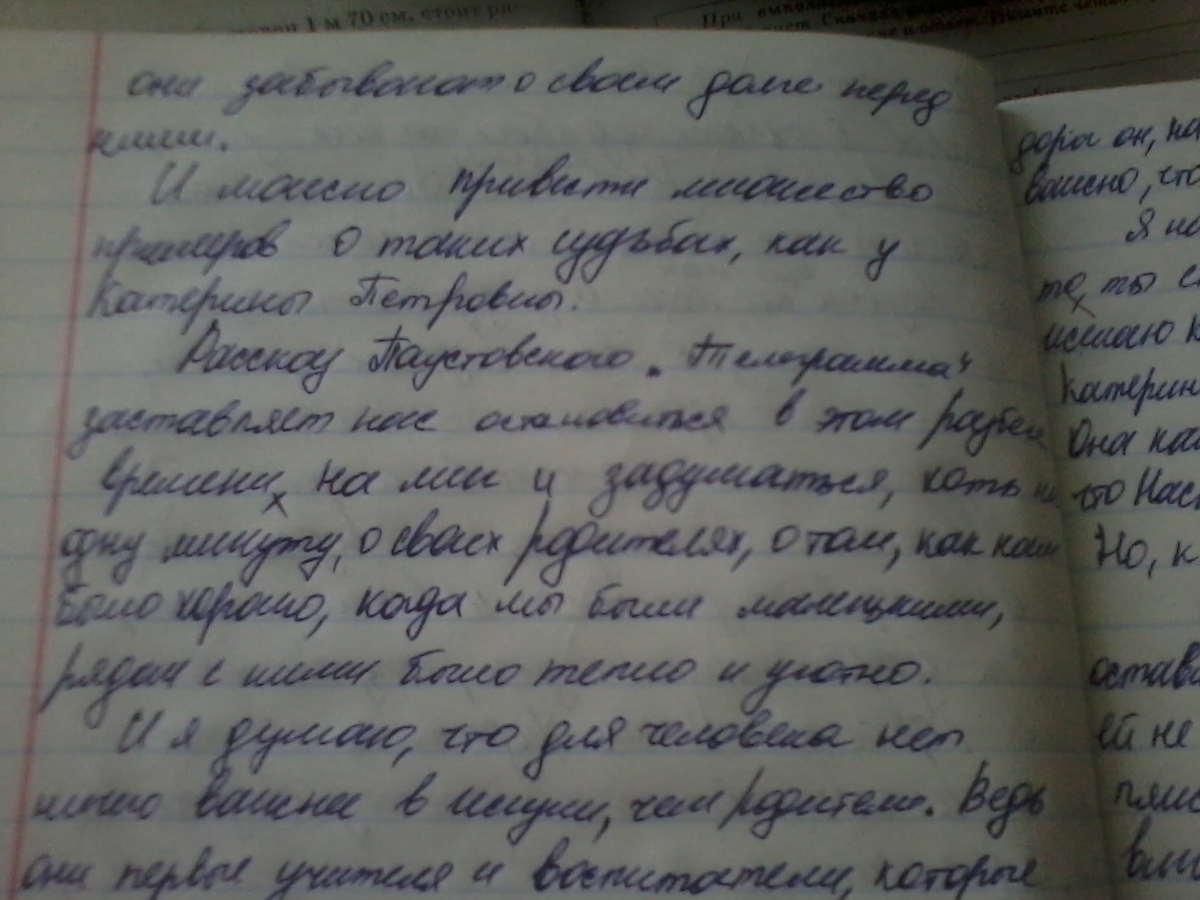 1 м 70 см. стоит ря-
При выполн
они забывают о своем долге перед
ними.
И можно привести множество
примеров о таких судьбах, как у
Катерины Петровны.
Рассказ Паустовского „Телеграмма“
заставляет нас остановиться в этом разбеге
времени, на миг и задуматься, хоть на
одну минуту, о своих родителях, о том, как нам
было хорошо, когда мы были маленькими,
рядом с ними было тепло и уютно.
И я думаю, что для человека нет
ничего важнее в жизни, чем родители. Ведь
они первые учителя и воспитатели, которые
дорог он, на
важно, что
Я
то, ты
Катерин
Она
что Нас
Но, к
остав
ей не